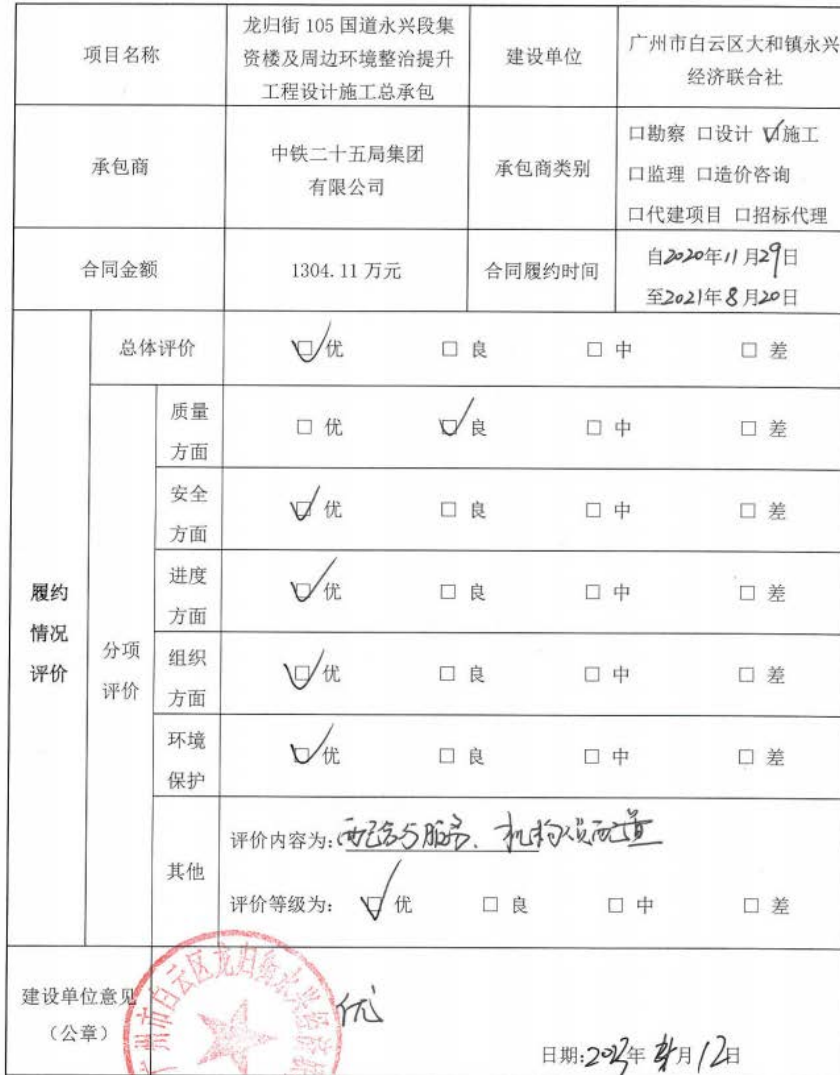 项目名称
龙归街 105 国道永兴段集
资楼及周边环境整治提升
工程设计施工总承包
建设单位
广州市白云区大和镇永兴
经济联合社
承包商
中铁二十五局集团
有限公司
承包商类别
口勘察 口设计 ☑施工
口监理 口造价咨询
口代建项目 口招标代理
合同金额
1304.11 万元
合同履约时间
自2020年11月29日
至2021年8月20日
履约
情况
评价
总体评价
☑优 □ 良 □ 中 □ 差
分项
评价
质量
方面
□ 优 ☑良 □ 中 □ 差
安全
方面
☑优 □ 良 □ 中 □ 差
进度
方面
☑优 □ 良 □ 中 □ 差
组织
方面
☑优 □ 良 □ 中 □ 差
环境
保护
☑优 □ 良 □ 中 □ 差
其他
评价内容为:配合与服务、机构人员配置
评价等级为: ☑ 优 □ 良 □ 中 □ 差
建设单位意见
（公章）
广州市白云区龙归街永兴经济联
优
日期: 年 月12日